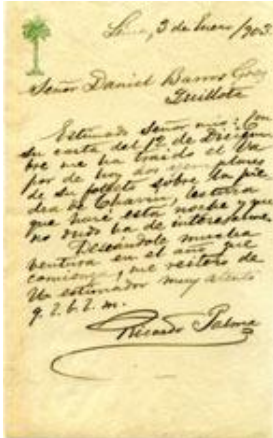 Lima, 3 de Enero/903.
Señor Daniel Barros Grez
Quillota
Estimado Señor mío: Con
su carta del 1º de Diciem
bre me ha traído el Va
por de hoy dos ejemplares
de su folleto sobre la pie
dra de Chavin, lectura
que haré esta noche y que
no dudo ha de interesarme.
Deseándole mucha
ventura en el año que
comienza, me reitero de
Ud estimador muy atento
q. l. b. l. m.
Ricardo Palma